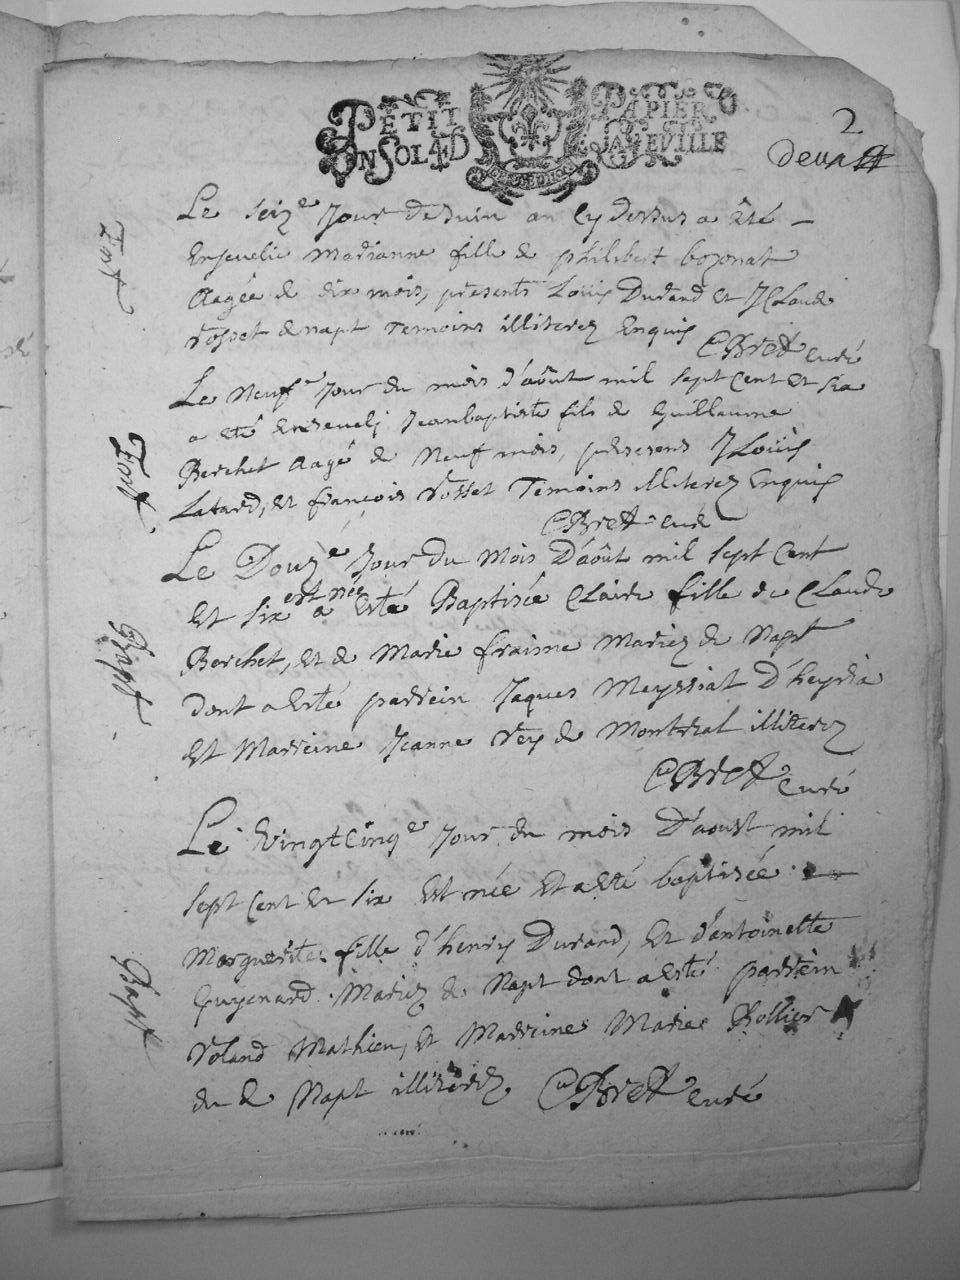 PETIT PAPIER
UN SOL 4 D LA FEUILLE
2
deux
Le seize Jour de Juin an cy dessus a êté
Ensevelie Marianne fille de philibert bozonat
Aagée de dix mois, presents Louis Durand et J Claude
rosset de napt Temoins illiterez Enquis
CBret curé
Le Neuf.e Jour du mois d'aôut mil sept cent et six
a eté ensevelj Jeanbaptiste fils de Guillaume
Berchet Aagé de Neuf mois, presens J Loüis
Latard, et francois rosset Temoins illiterez Enquis
CBret curé
Le Douz.e Jour du Mois D'aôut mil sept Cent
est née
Et six a Esté Baptisée Claire fille de Claude
Berchet, et de Marie fraime Mariez de Napt
dont a esté parrein Jaques Meyssiat d'heyria
et Marreine Jeanne rey de Montreal illiterez
CBret curé
Le vingtcinq.e Jour du mois D'aoust mil
sept Cent et six est née et a eté baptisée
Marguerite fille d'henry Durand, et d'antoinette
Guyenard Mariez de Napt dont a esté parrein
roland Mathieu, et Marreine Marie Rollier
du d Napt illiterez CBret curé
Bapt
Bapt